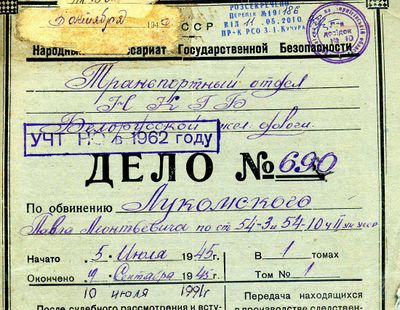 5 октября 194
ССР
РОЗСЕКРЕЧЕНО
Перелік №19/186
Від 11.05.2010
ПР-К РСО З.І.Кучура
Народный Комиссариат Государственной Безопасности
Транспортный отдел
НКГБ
Белорусской жел. дороги.
УЧТ 1962 году
ДЕЛО №690
По обвинению Лукомского
Павла Леонтьевича по ст 54-3 и 54-10 ч II ук усср
Начато 5 Июля 1945г. В 1 томах
Окончено 9 Сентября 1945г. Том № 1
10 июля 1991г.
После судебного рассмотрения и всту- Передача находящихся
в производстве следствен-